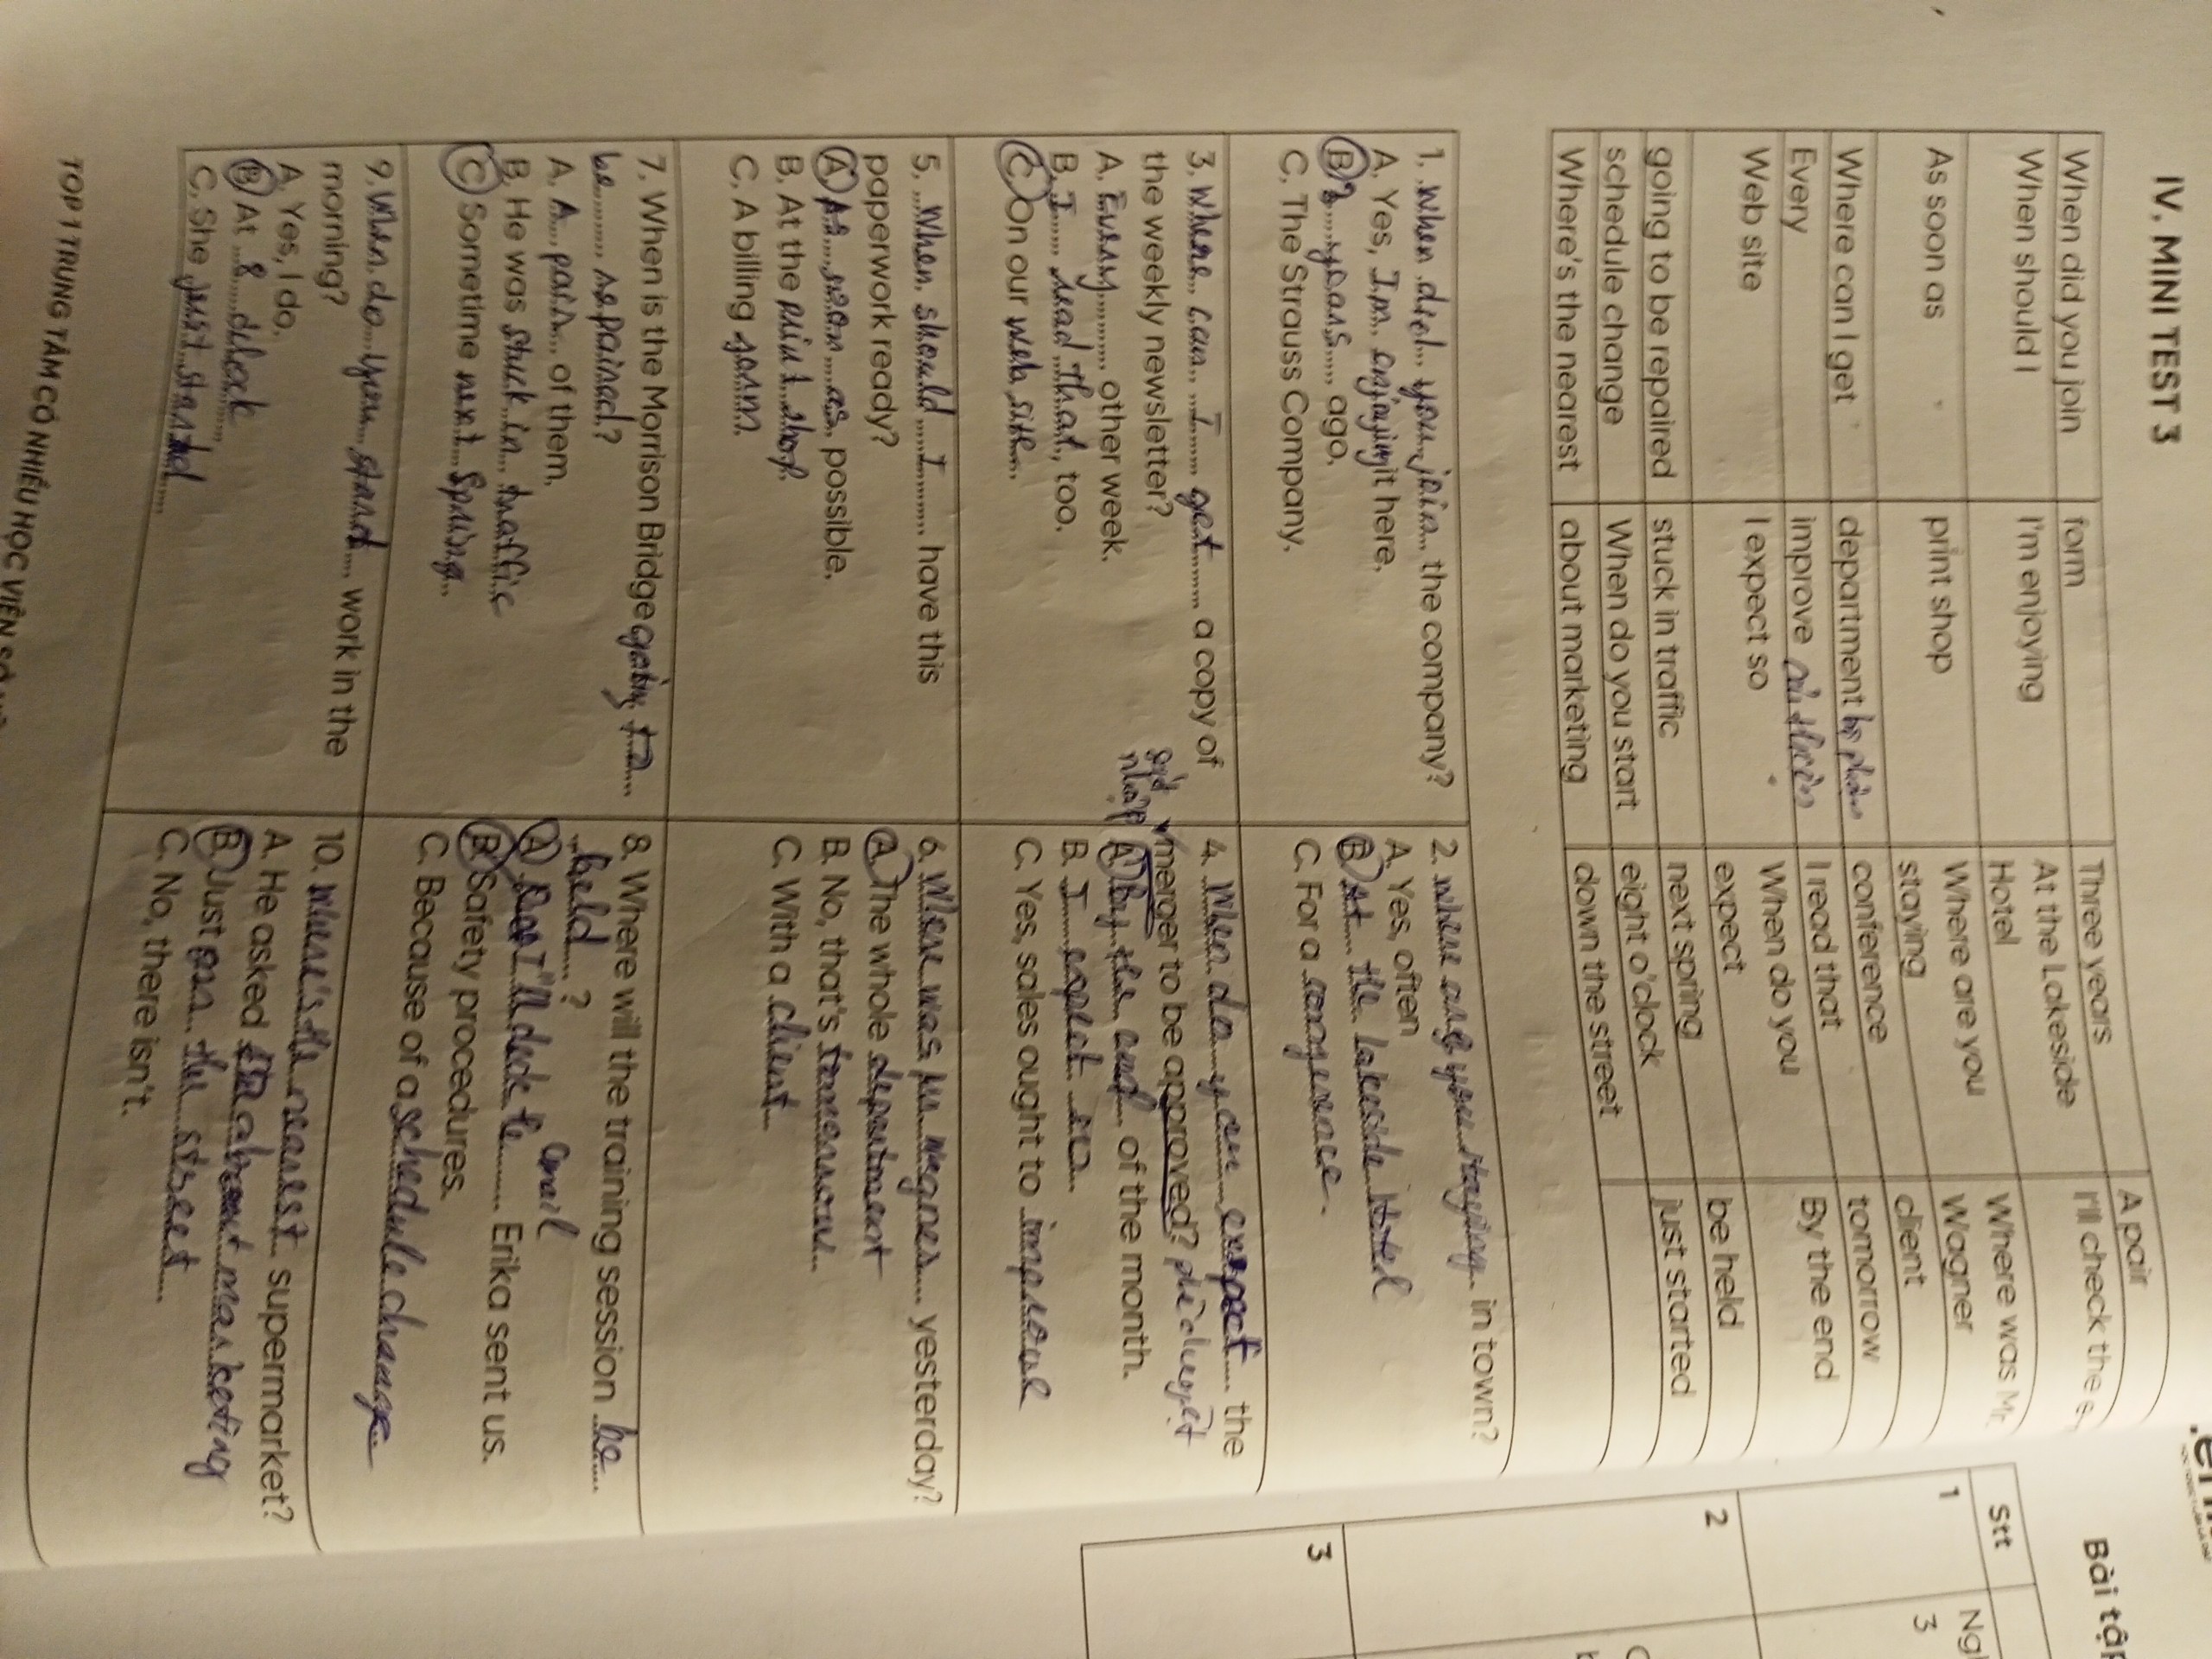 IV. MINI TEST 3
When did you join
form
Three years
A pair
When should I
I'm enjoying
At the Lakeside
Hotel
I'll check the
As soon as
print shop
Where are you
staying
Where was Mr.
Wagner
Where can I get
department bộ phận
conference
client
Every
improve cải thiện
I read that
tomorrow
Web site
I expect so
When do you
expect
By the end
going to be repaired
stuck in traffic
next spring
be held
schedule change
When do you start
eight o'clock
just started
Where's the nearest
about marketing
down the street
1. When did you join the company?
A. Yes, I'm enjoying it here.
B. 3 years ago.
C. The Strauss Company.
2. where are you staying in town?
A. Yes, often
B. at the lakeside hotel
C. For a conference.
3. Where can I get a copy of
the weekly newsletter?
A. Every other week.
B. I read that, too.
C. On our web site.
4. When do you expect the
merger to be approved? phê duyệt
sáp
nhập
A. By the end of the month.
B. I expect so
C. Yes, sales ought to improve
5. When should I have this
paperwork ready?
A. As soon as possible.
B. At the print shop.
C. A billing form.
6. Where was Mr wagner yesterday?
A. The whole department
B. No, that's tomorrow.
C. With a client
7. When is the Morrison Bridge going to
be repaired?
A. A pair of them.
B. He was stuck in traffic
C. Sometime next Spring.
8. Where will the training session be
held ?
A. I'll check the Erika sent us.
email
B. Safety procedures.
C. Because of a schedule change
9. When do you start work in the
morning?
A. Yes, I do.
B. At 8 o'clock
C. She just started
10. Where's the nearest supermarket?
A. He asked about marketing
B. Just down the street
C. No, there isn't.
TOP 1 TRUNG TÂM CÓ NHIỀU HỌC VIÊN
Bài tập
Stt
1
3
2
3